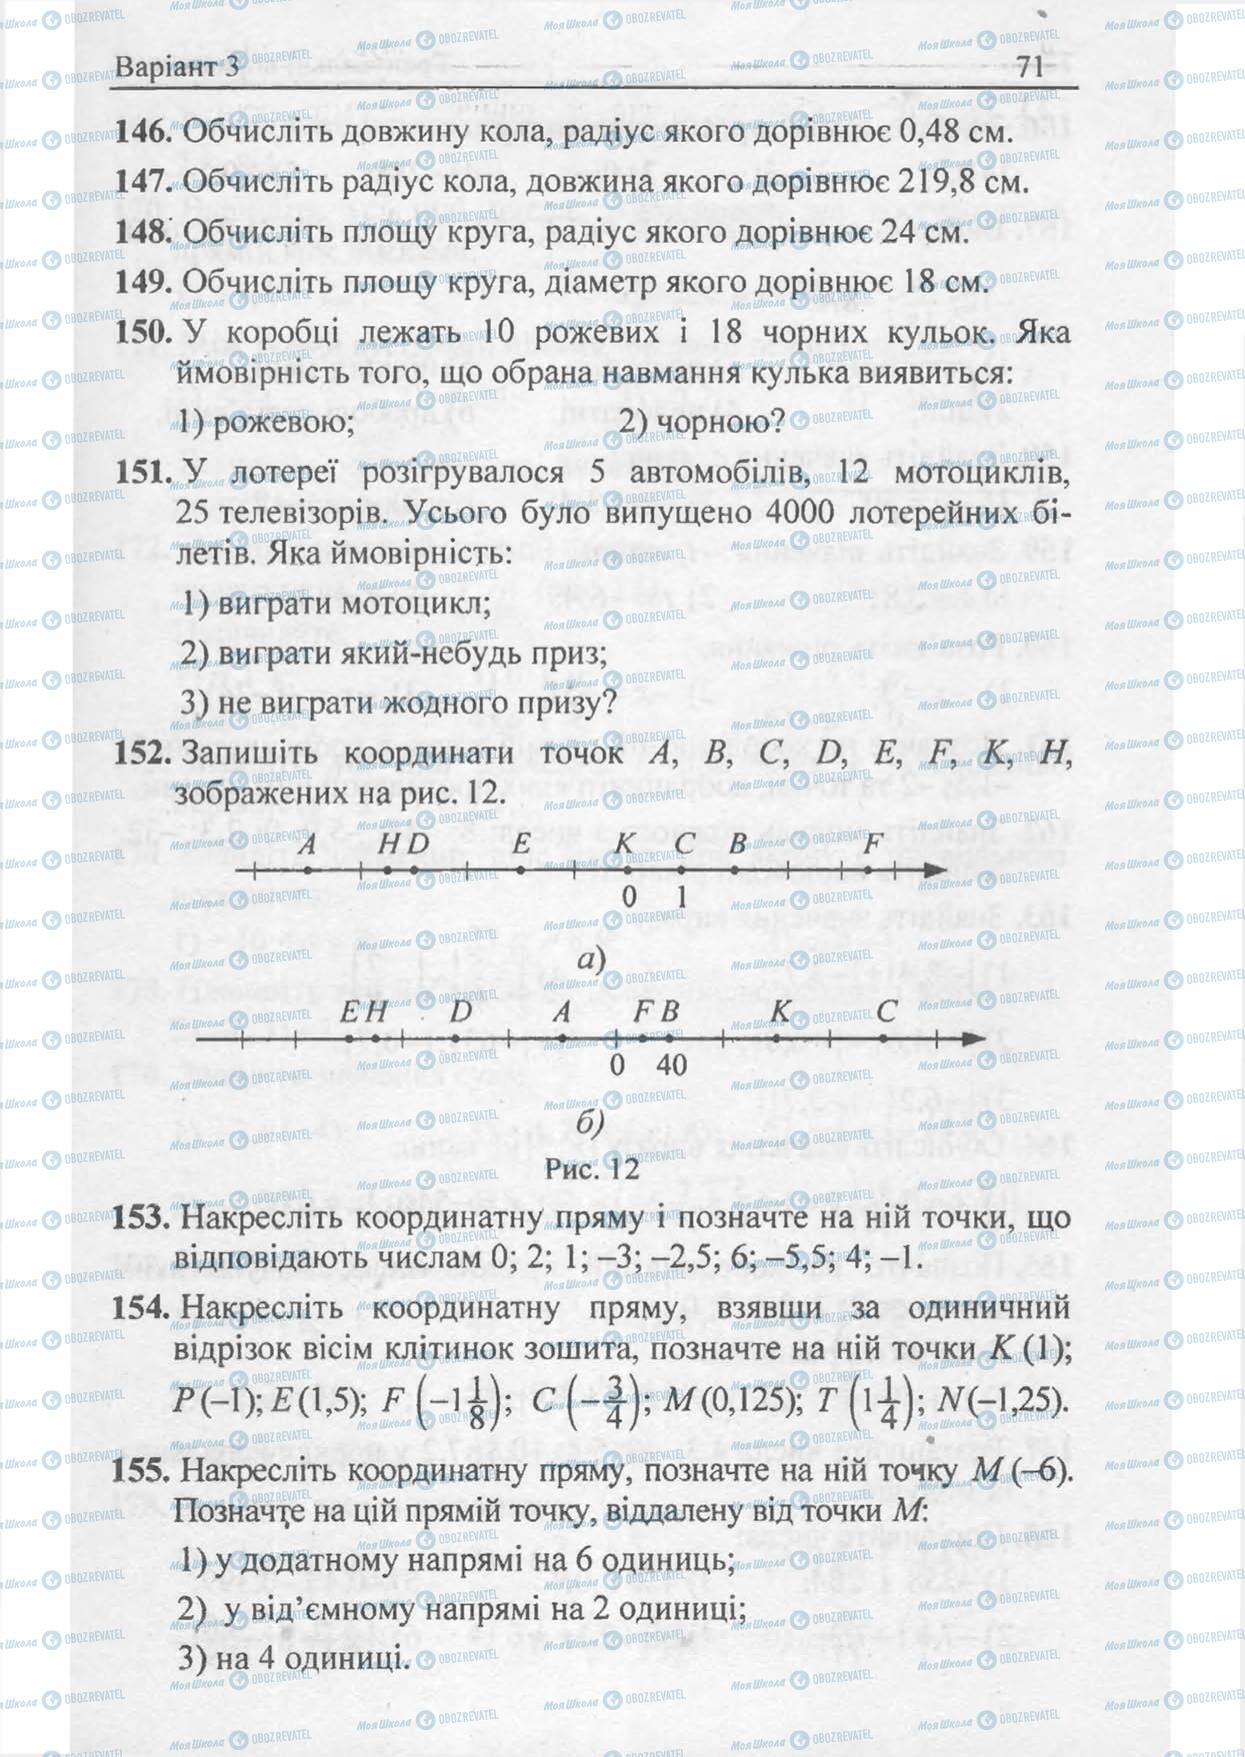 Варіант 3 71
146. Обчисліть довжину кола, радіус якого дорівнює 0,48 см.
147. Обчисліть радіус кола, довжина якого дорівнює 219,8 см.
148. Обчисліть площу круга, радіус якого дорівнює 24 см.
149. Обчисліть площу круга, діаметр якого дорівнює 18 см.
150. У коробці лежать 10 рожевих і 18 чорних кульок. Яка
ймовірність того, що обрана навмання кулька виявиться:
1) рожевою; 2) чорною?
151. У лотереї розігрувалося 5 автомобілів, 12 мотоциклів,
25 телевізорів. Усього було випущено 4000 лотерейних бі-
летів. Яка ймовірність:
1) виграти мотоцикл;
2) виграти який-небудь приз;
3) не виграти жодного призу?
152. Запишіть координати точок A, B, C, D, E, F, K, H,
зображених на рис. 12.
A H D E K C B F
0 1
а)
E H D A F B K C
0 40
б)
Рис. 12
153. Накресліть координатну пряму і позначте на ній точки, що
відповідають числам 0; 2; 1; –3; –2,5; 6; –5,5; 4; –1.
154. Накресліть координатну пряму, взявши за одиничний
відрізок вісім клітинок зошита, позначте на ній точки K (1);
P (–1); E (1,5); F (–1 1/8); C (–3/4); M (0,125); T (1 1/4); N (–1,25).
155. Накресліть координатну пряму, позначте на ній точку M (–6).
Позначте на цій прямій точку, віддалену від точки M:
1) у додатному напрямі на 6 одиниць;
2) у від’ємному напрямі на 2 одиниці;
3) на 4 одиниці.
Моя Школа OBOZREVATEL